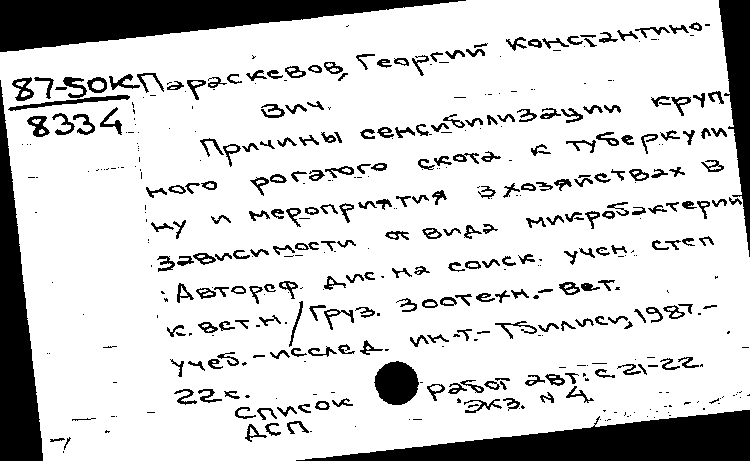 87-50К Параскевов, Георгий Константино-
8334 вич.
Причины сенсибилизации круп-
ного рогатого скота к туберкули-
ну и мероприятия в хозяйствах в
зависимости от вида микробактерий
: Автореф. дис. на соиск. учен. степ
к. вет. н. / Груз. зоотехн.-вет.
учеб.-исслед. ин-т.- Тбилиси, 1987.-
22 с.
Список работ авт.: с. 21-22.
ДСП Экз. N 4.